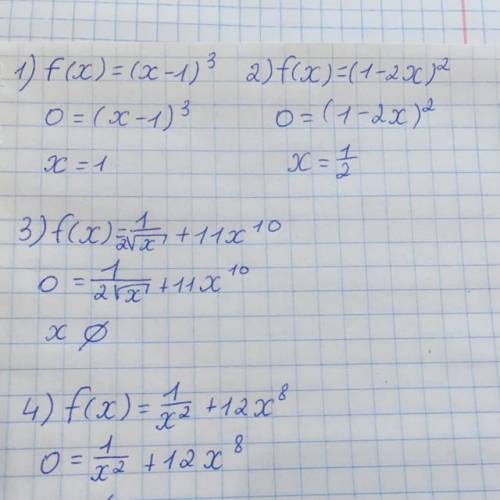 1) f(x) = (x-1)³ 2) f(x) = (1-2x)²
0 = (x-1)³ 0 = (1-2x)²
x = 1 x = 1/2
3) f(x) = 1/(2√x) + 11x¹⁰
0 = 1/(2√x) + 11x¹⁰
x ∅
4) f(x) = 1/x² + 12x⁸
0 = 1/x² + 12x⁸